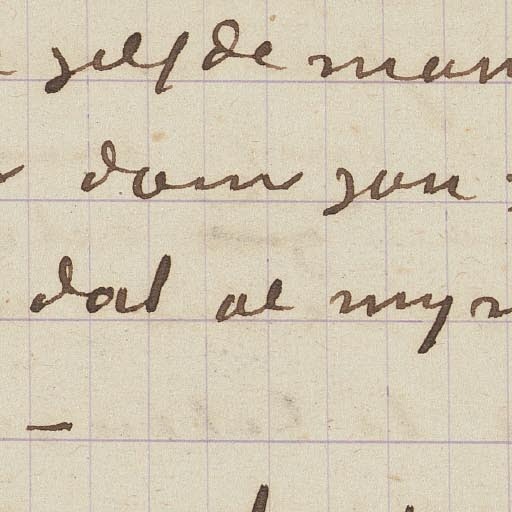 zelfde man
dom zou
dat al myn
—